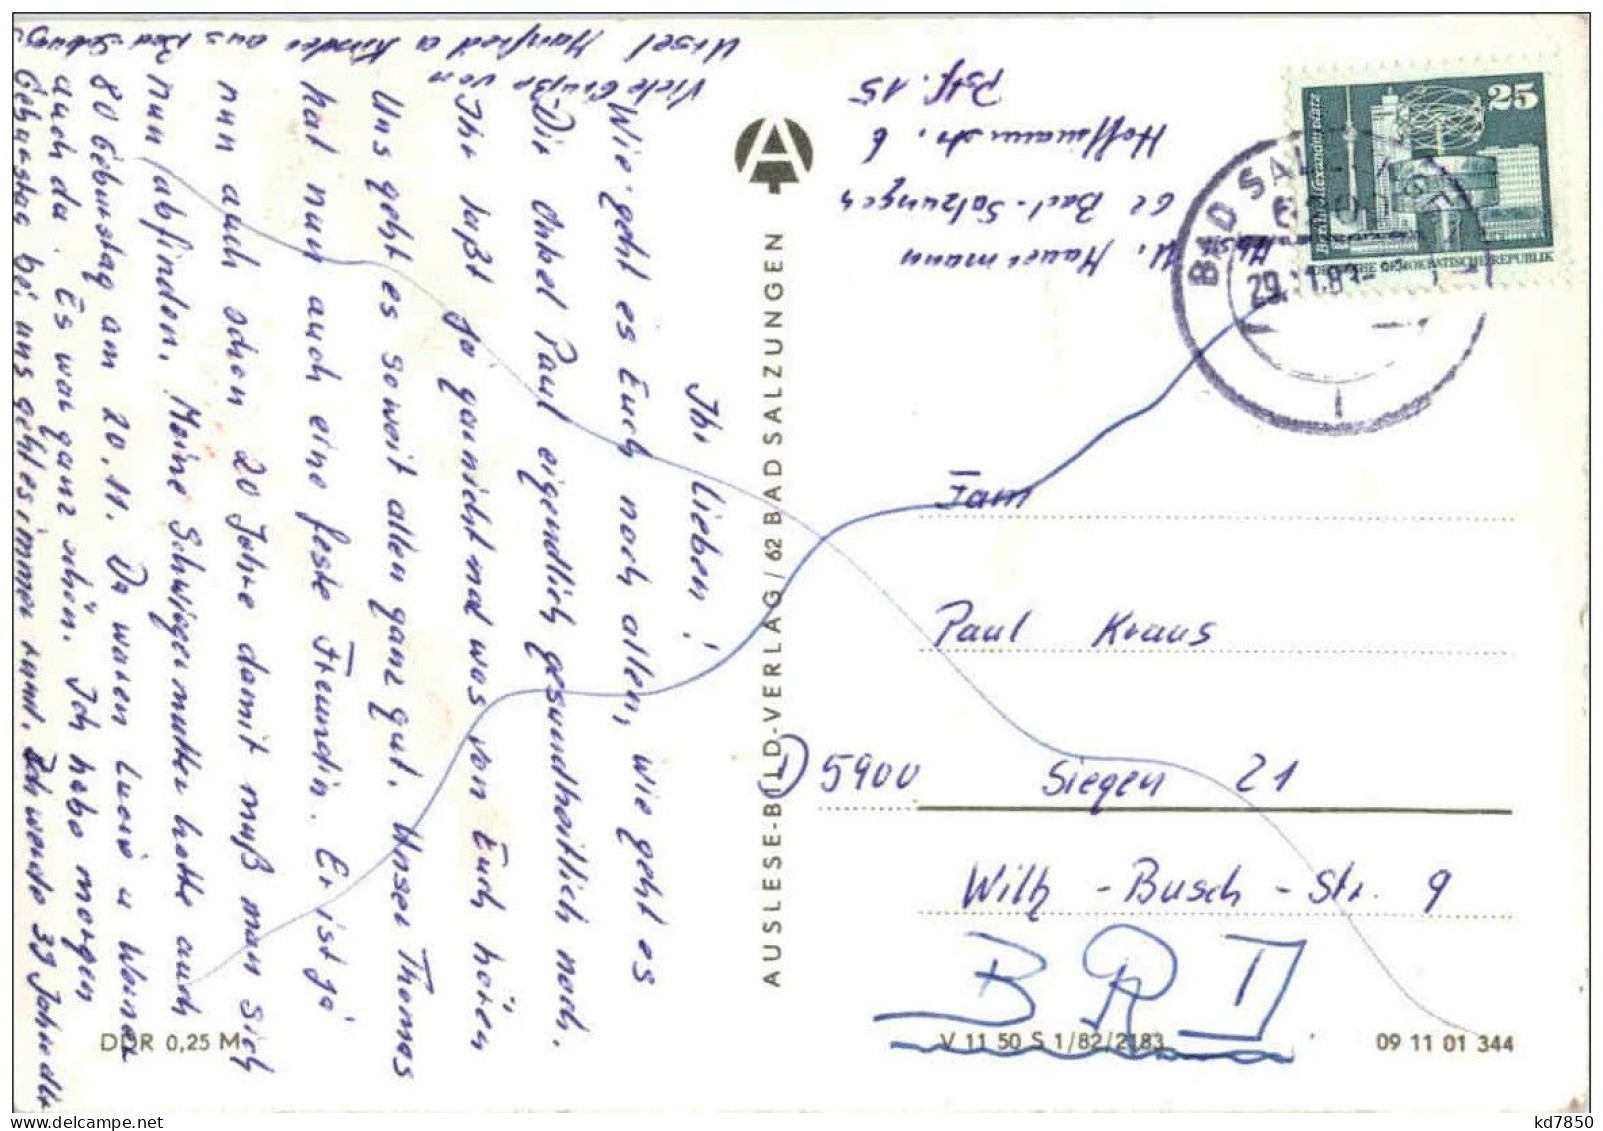 Ihr Lieben!
Wie geht es Euch noch allen, wie geht es
Dir Onkel Paul eigendlich gesundheitlich noch.
Ihr laßt Ja garnicht mal was von Euch hören
Uns geht es soweit allen ganz gut. Unser Thomas
hat nun auch eine feste Freundin. Er ist ja
nun auch schon 20 Jahre damit muß man sich
nun abfinden. Meine Schwiegermutter hatte auch
80 Geburstag am 20.11. Da waren Lucie u Werner
auch da. Es war ganz schön. Ich habe morgen
Geburstag bei uns geht es immer rund. Ich werde 39 Jahre alt
Viele Grüße von
Ursel Manfred u Kinder aus Bad-Salzung.
AUSLESE-BILD-VERLAG/62 BAD SALZUNGEN
A
Abs.
U. Hauermann
62 Bad-Salzungen
Hoffmannstr. 6
Pstf. 15
25
Berlin, Alexanderplatz
DEUTSCHE DEMOKRATISCHE REPUBLIK
BAD SALZUNGEN
6200
29.11.83
Fam
Paul Kraus
D 5900 Siegen 21
Wilh - Busch - Str. 9
BRD
DDR 0,25 M
V 11 50 S 1/82/2183
09 11 01 344
kd7850